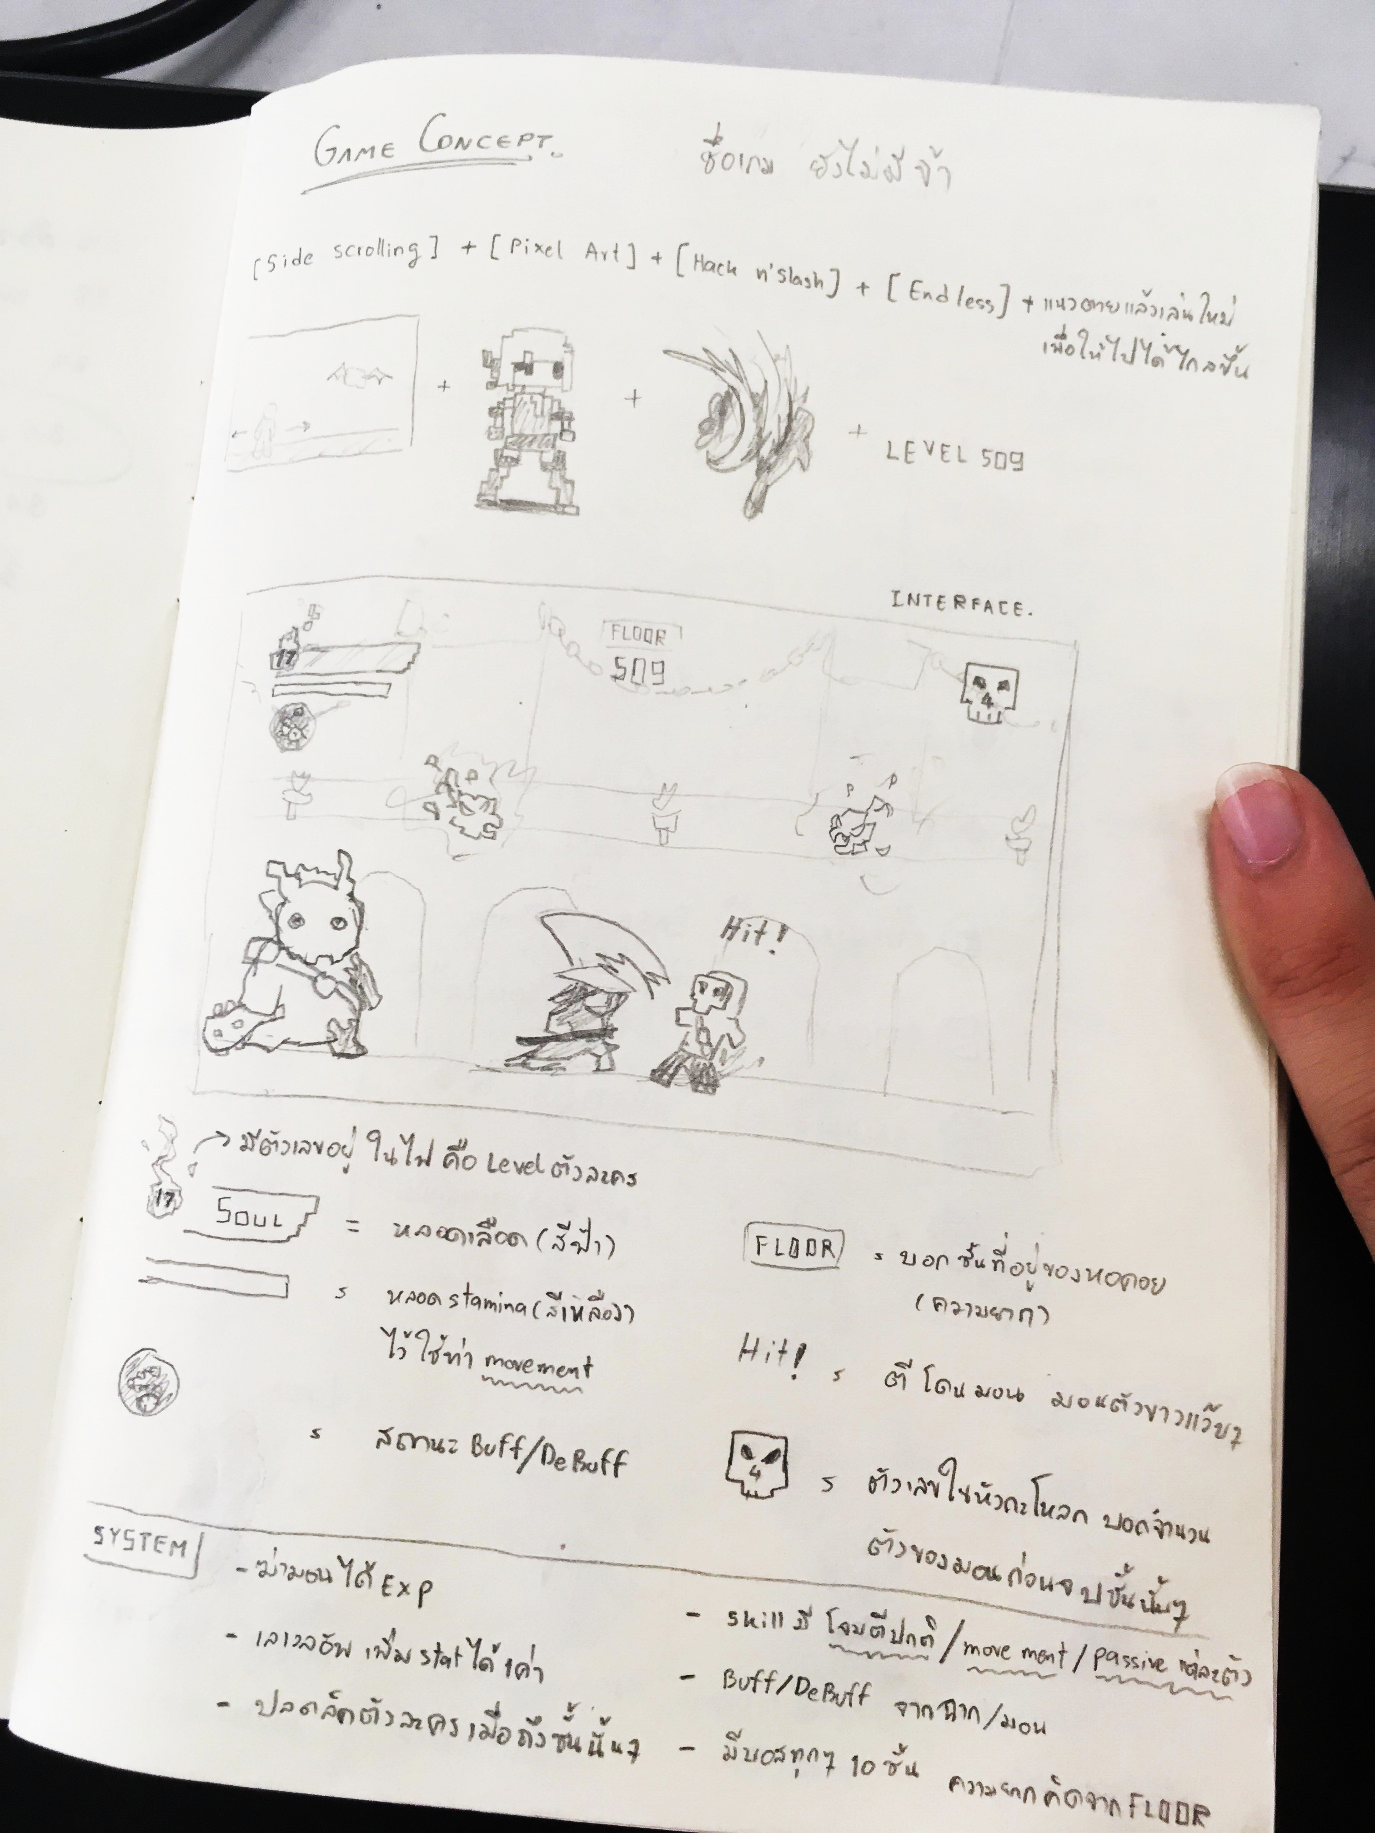 GAME CONCEPT.
ชื่อเกม ยังไม่มีจ้า
[Side scrolling] + [Pixel Art] + [Hack n'Slash] + [Endless] + แนวตายแล้วเล่นใหม่
เพื่อให้ไปได้ไกลขึ้น
+ + + LEVEL 509
INTERFACE.
FLOOR
509
17
4
Hit!
มีตัวเลขอยู่ในไฟ คือ Level ตัวละคร
17
SOUL = หลอดเลือด (สีฟ้า)
= หลอด stamina (สีเหลือง)
ไว้ใช้ท่า movement
= สถานะ Buff/DeBuff
FLOOR = บอกชั้นที่อยู่ของหอคอย
(ความยาก)
Hit! = ตีโดนมอน มอนตัวขาวแว๊บๆ
4 = ตัวเลขในหัวกะโหลก บอกจำนวน
ตัวของมอนก่อนจบชั้นนั้นๆ
SYSTEM
- ฆ่ามอนได้ EXP
- เลเวลอัพ เพิ่ม stat ได้ 1 ค่า
- ปลดล็คตัวละครเมื่อถึงชั้นนั้นๆ
- skill มี โจมตีปกติ/movement/passive แต่ละตัว
- Buff/DeBuff จากฉาก/มอน
- มีบอสทุกๆ 10 ชั้น ความยากคิดจาก FLOOR